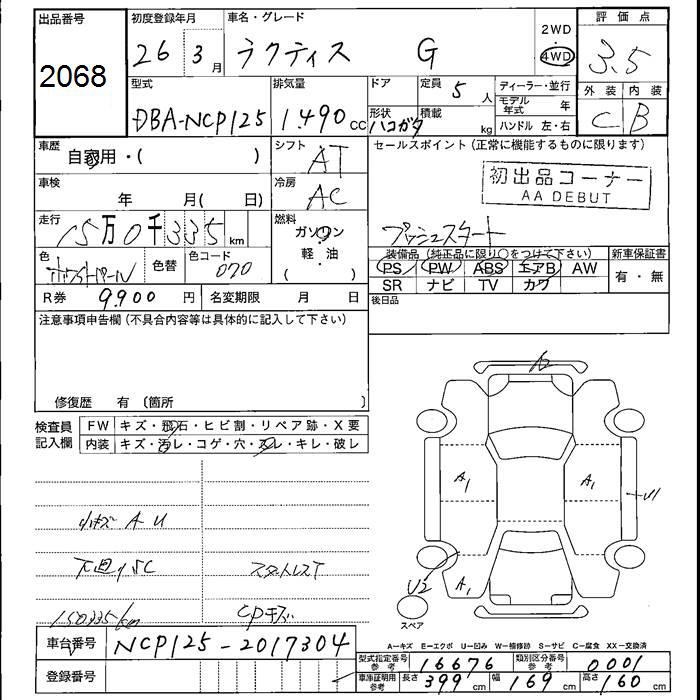 出品番号 初度登録年月 車名・グレード 2WD 評価点
2068 26 3月 ラクティス G 4WD 3.5
型式 排気量 ドア 定員 5人 ディーラー・並行 外装 内装
DBA-NCP125 1.490cc 形状 ハコガタ 積載 kg モデル年式 年 C B
ハンドル 左・右
車歴 自家用・( ) シフト AT セールスポイント (正常に機能するものに限ります)
初出品コーナー
AA DEBUT
車検 年 月( 日) 冷房 AC
走行 15万0千335km 燃料 ガソリン 軽・油 ( ) プッシュスタート
色 ホワイトパール 色替 色コード 070 装備品 (純正品に限り○をつけて下さい) 新車保証書
PS PW ABS エアB AW 有・無
SR ナビ TV カワ
R券 9.900円 名変期限 月 日 後日品
注意事項申告欄 (不具合内容等は具体的に記入して下さい)
修復歴 有 (箇所 )
A2
検査員記入欄 FW キズ・飛石・ヒビ割・リペア跡・X要
内装 キズ・汚レ・コゲ・穴・スレ・キレ・破レ
A1 A1 U1
小キズ A U
下廻りSC スタットレスT
U2 A1
150335/km CPキズ スペア
車台番号 NCP125-2017304
A−キズ E−エクボ U−凹み W−補修跡 S−サビ C−腐食 XX−交換済
型式指定番号 参考 16676 類別区分番号 参考 0001
登録番号 車庫証明用 参考 長さ 399cm 幅 169cm 高さ 160cm